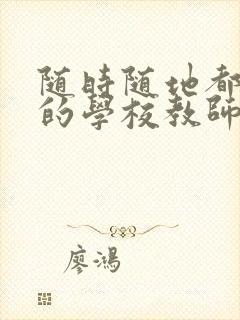 随時随地都
的學校教師
廖鴻